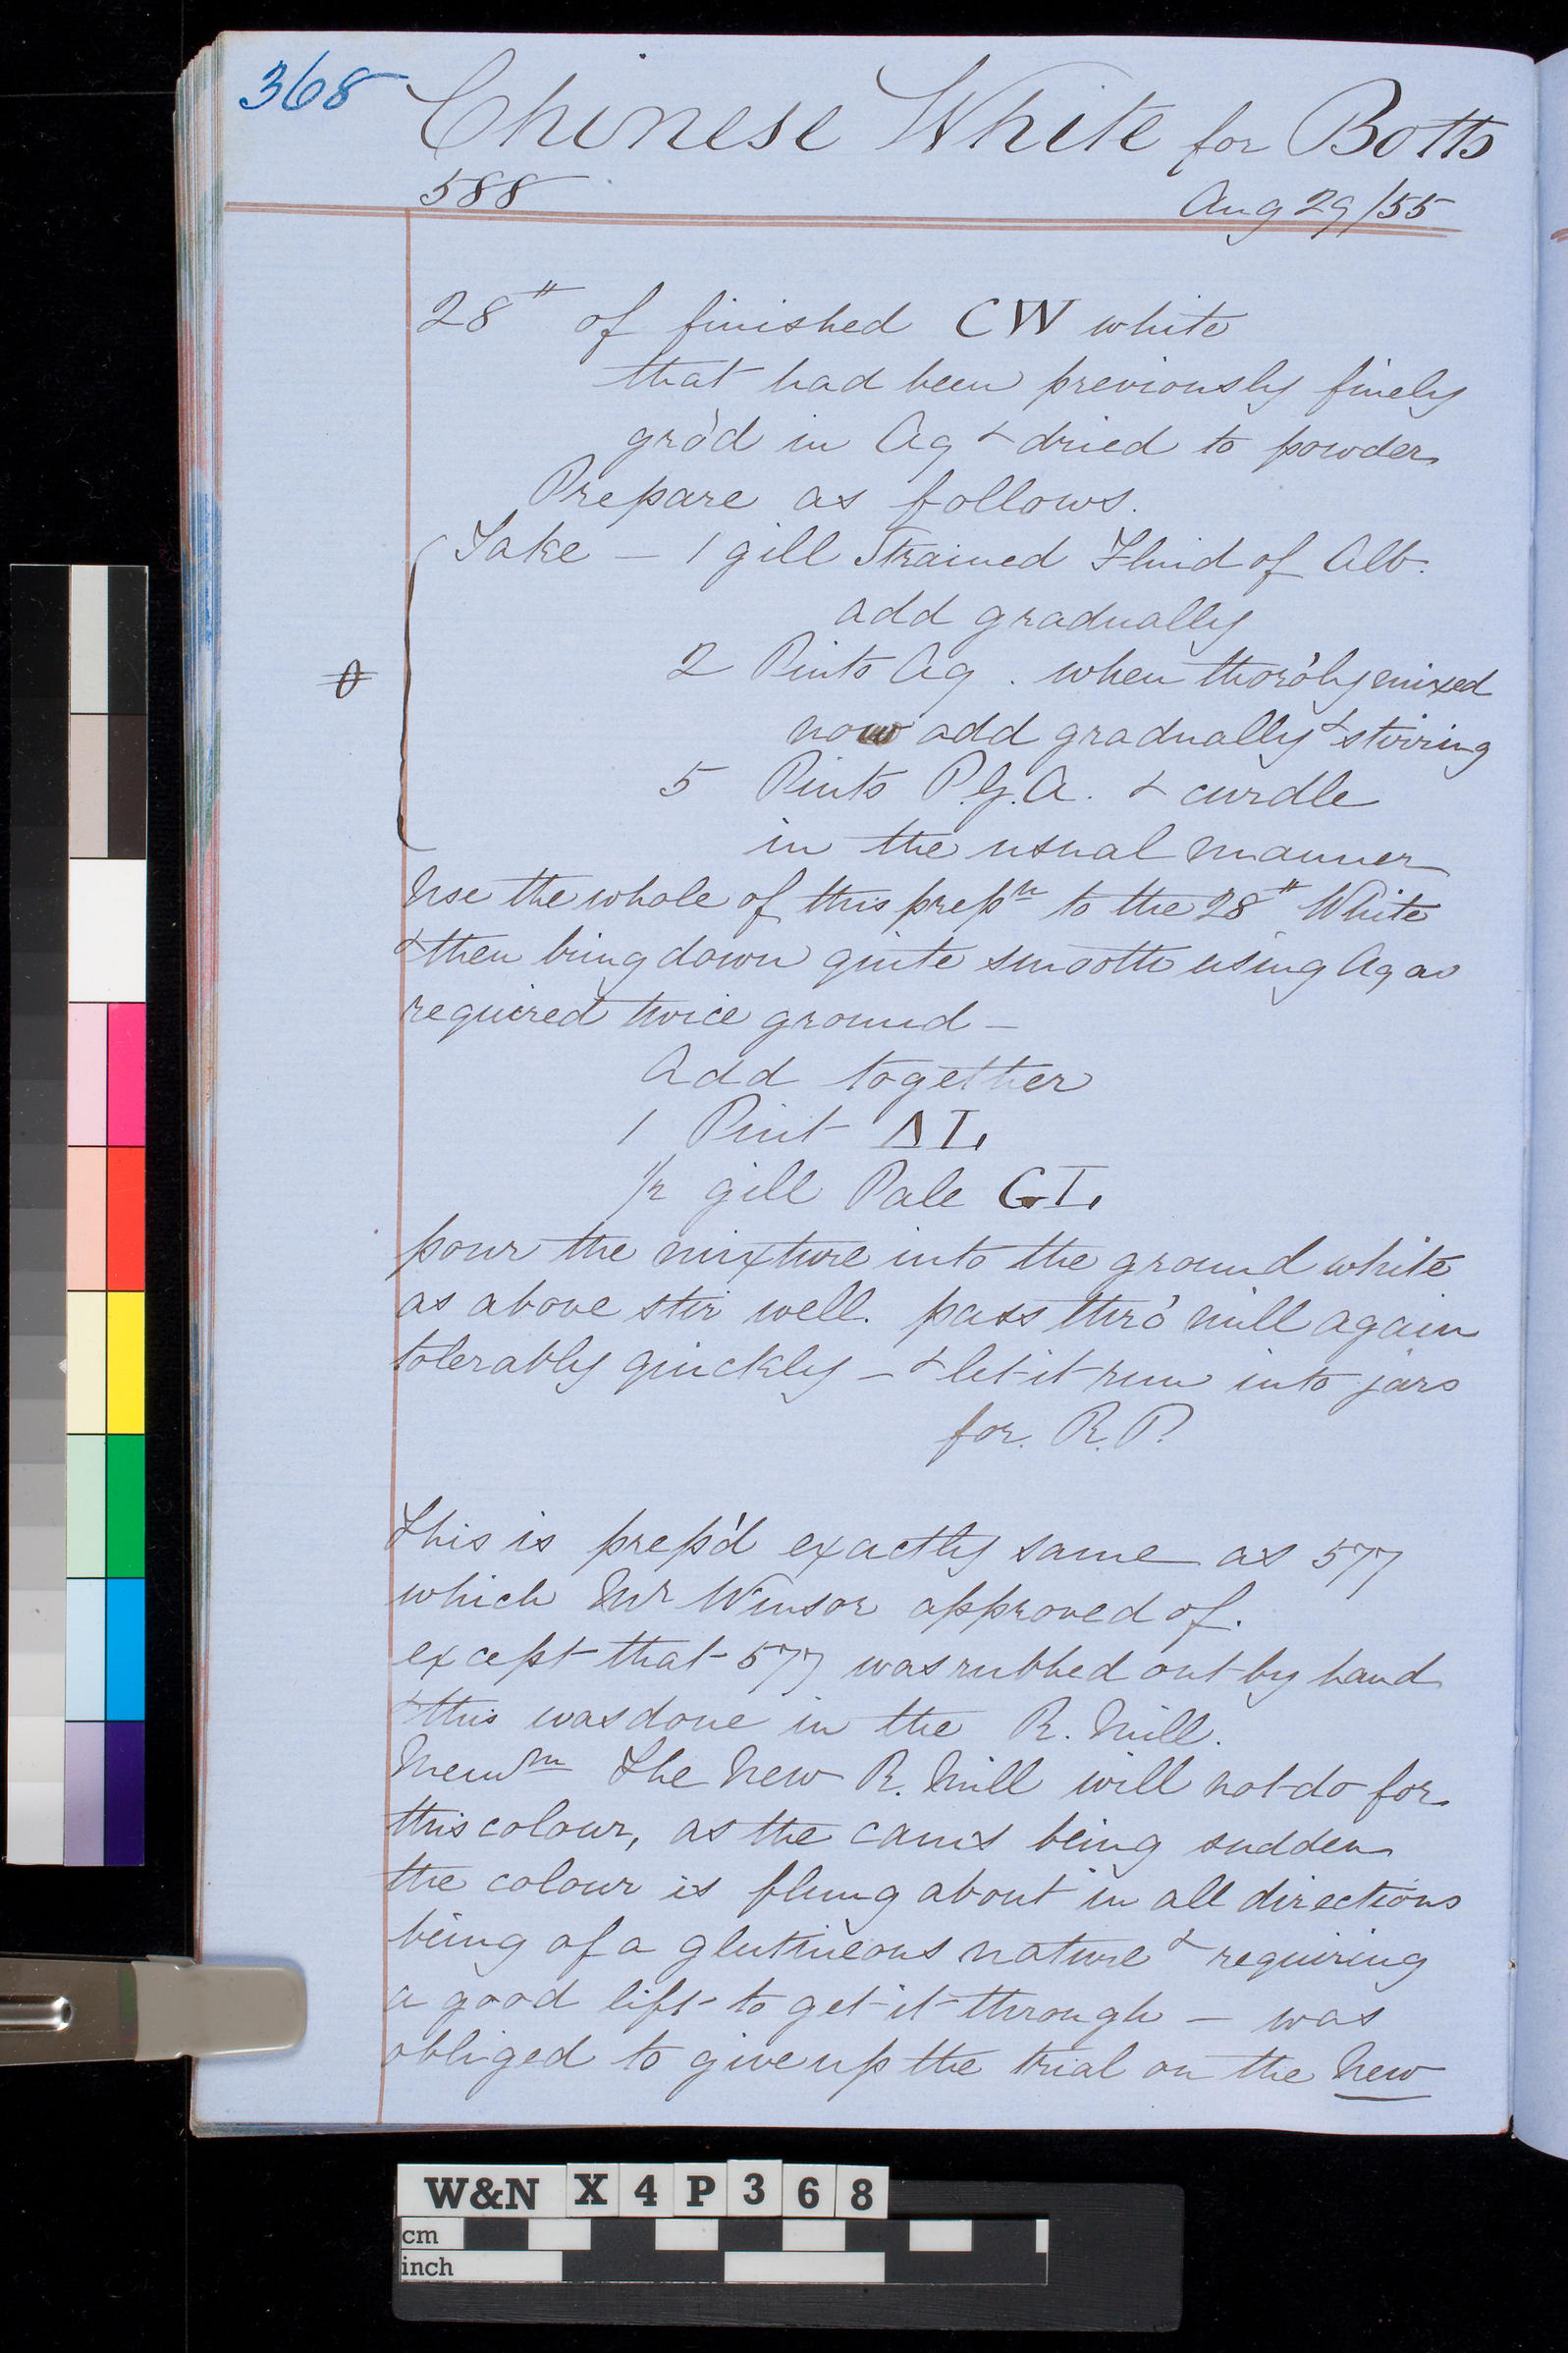 368 Chinese White for Botts
588 Aug 29/55
28" of finished CW white
that had been previously finely
gro'd in Aq & dried to powder
Prepare as follows.
Take — 1 gill Strained Fluid of Alb.
add gradually
2 Pints Aq. when thoro'ly mixed
now add gradually & stirring
5 Pints P.G.A. & curdle
in the usual manner
Use the whole of this prepn to the 28" White
& then bring down quite smooth using Aq as
required twice ground —
Add together
1 Pint
1/2 gill Pale
pour the mixture into the ground white
as above stir well. pass thro' mill again
tolerably quickly — & let it run into jars
for. R.P.
This is prep'd exactly same as 577
which Mr Winsor approved of.
except that 577 was rubbed out by hand
& this was done in the R. Mill.
Memm The New R. Mill will not do for
this colour, as the cams being sudden
the colour is flung about in all directions
being of a glutineous nature & requiring
a good lift to get it through — was
obliged to give up the trial on the New
W&N X 4 P 3 6 8
cm
inch